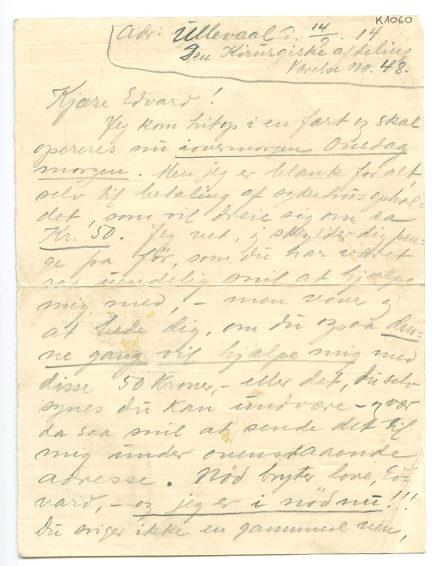 K1060
Adr: Ullevaal s. 14/9. 14
Den Kirurgiske afdeling
Værelse No. 48.
Kjære Edvard!
Jeg kom hitop i en fart og skal
opereres nu iovermorgen Onsdag
morgen. Men jeg er blank for alt,
selv til betaling af sykehusophol-
det, som vil dreie sig om ca
Kr. 50. Jeg vet, j skylder dig pen-
ge fra før, som du har været
saa uendelig snil at hjælpe
mig med, – men vover jeg
at bede dig, om du ogsaa den-
ne gang vil hjælpe mig med
disse 50 Kroner, – eller det, du selv
synes du kan undvære – og vær
da saa snil at sende det til
mig under ovenstaaende
adresse. Nød bryter love, Ed-
vard, – og jeg er i nød nu!!!
Du sviger ikke en gammel ven,